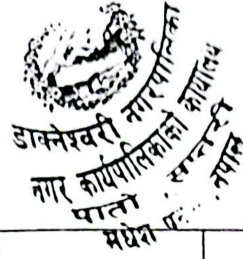 डाक्नेश्वरी नगरपालिका
नगर कार्यपालिकाको कार्यालय
पातो सप्तरी
मधेश नेपाल